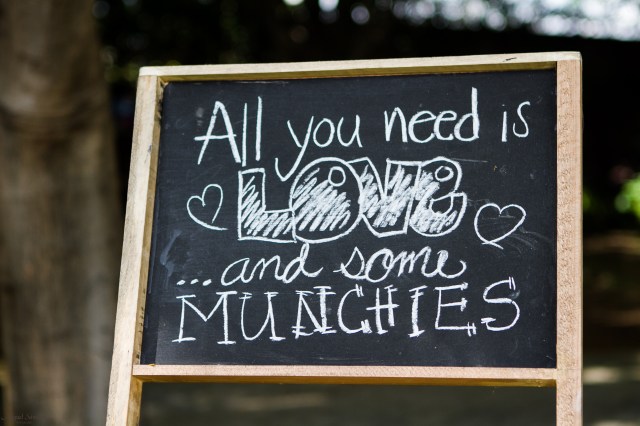 All you need is
LOVe
...and some
MUNCHIES